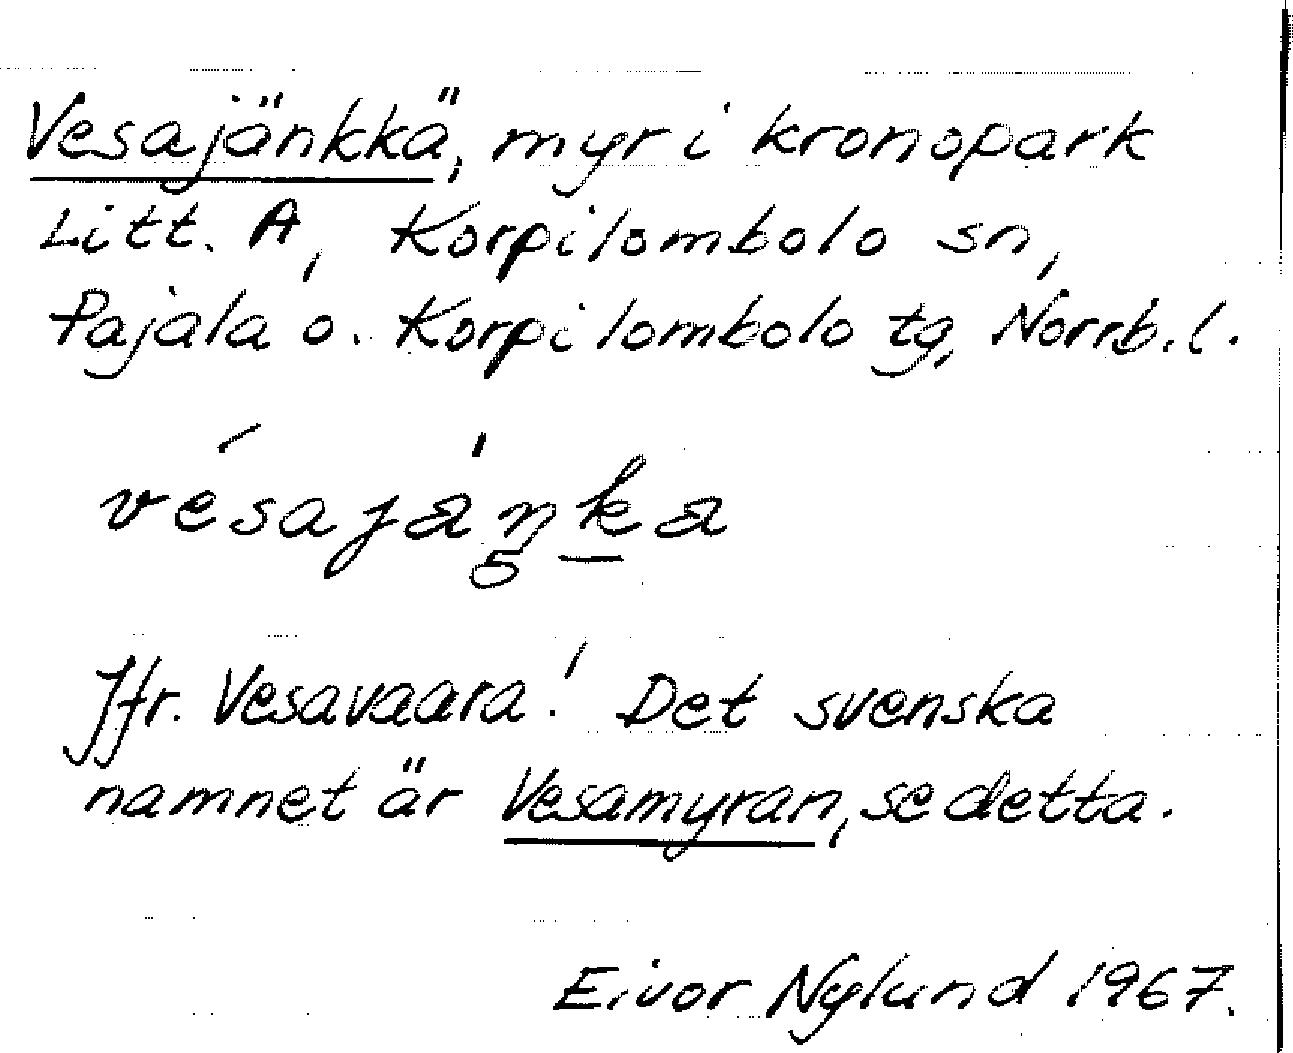 Vesajänkkä, myr i kronopark
Litt. A, Korpilombolo sn,
Pajala o. Korpilombolo tg, Norrb.l.
Jfr. Vesavaara! Det svenska
namnet är Vesamyran, se detta.
Eivor Nylund 1967.